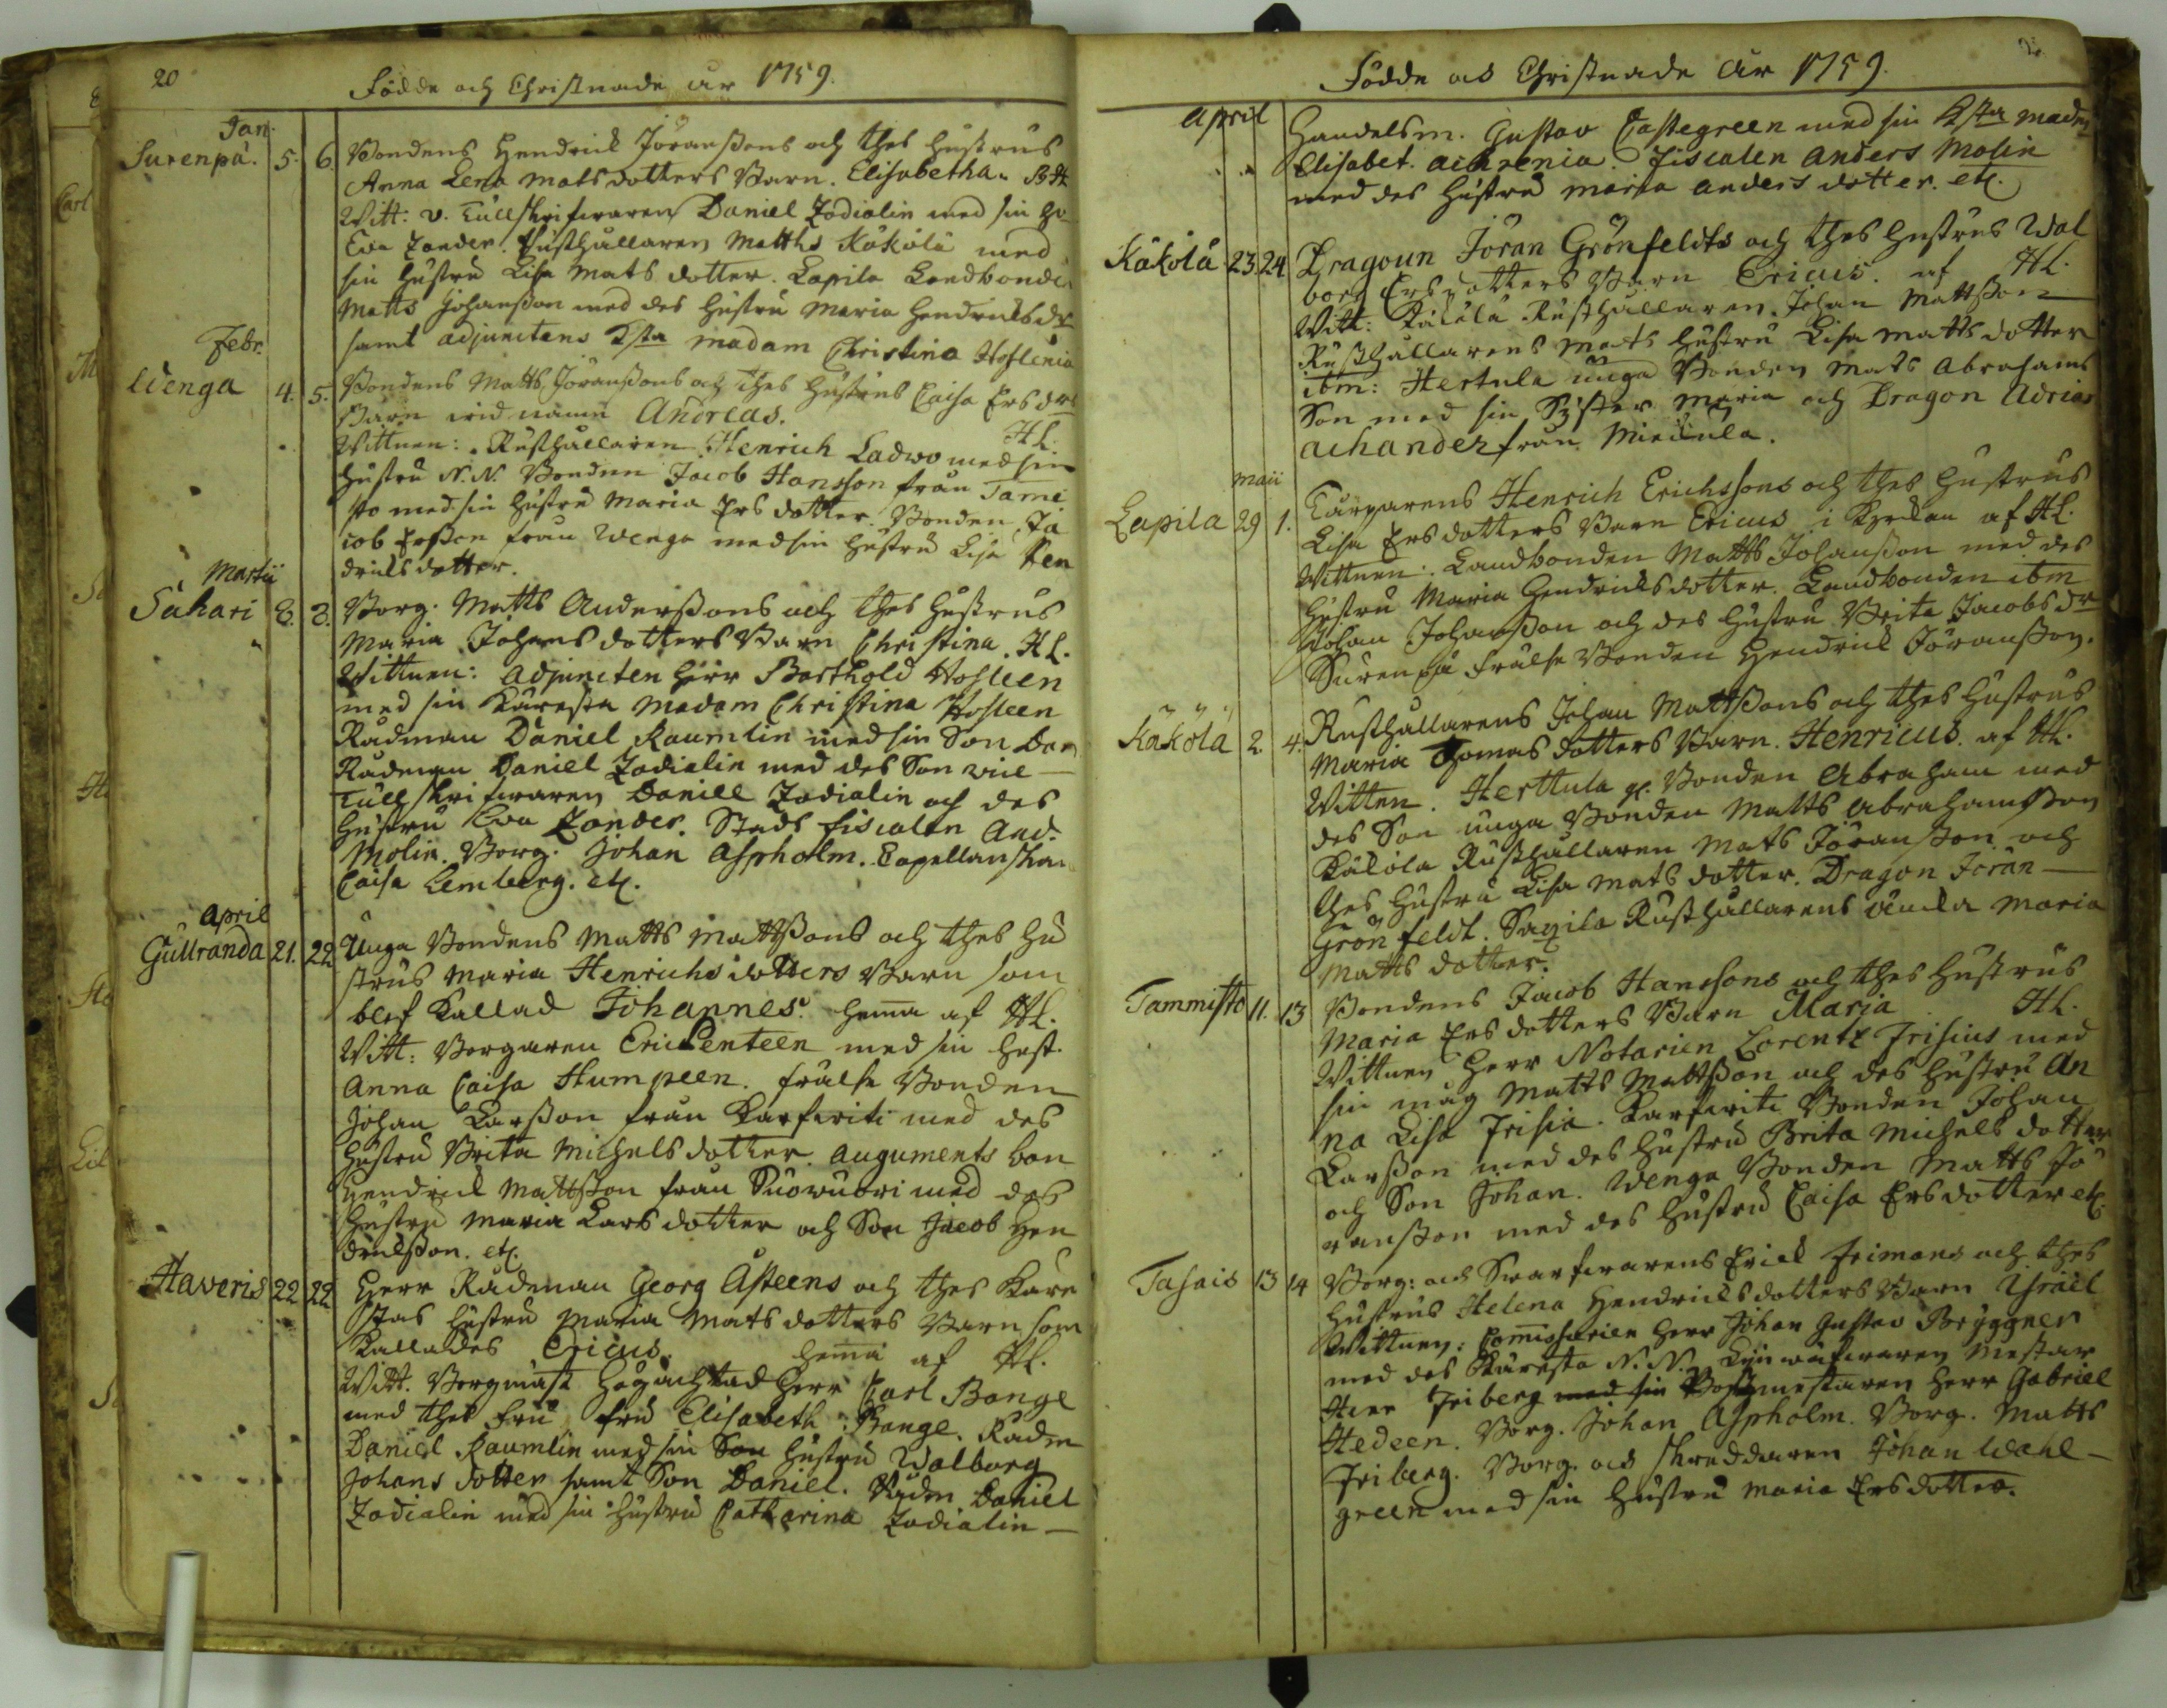 20
Födde och Christnade år 1759.
Jan.
Surenpä. 5. 6. Bondens Hendrick Jöranssons och thes hustrus
Anna Lena Matsdotters Barn. Elisabetha.
Witt: v. Tullskrifwaren Daniel Zodialin med sin hu
Eva Zander. Rusthållaren Matths Käkölä med
sin hustru Lisa Mats dotter. Lapila Landbonde
Matts Johansson med des hustru Maria Hendricks dr
samt adjunctens K:sta madam Christina Hoflenia
Febr.
Wenga 4. 5. Bondens Matts Jöranssons och thes hustrus Caisa Ers drs
Barn wid namn Andreas. HL.
Wittnen: Rusthållaren Henrich Ladwo med sin
hustru N.N. Bonden Jacob Hansson från Tami
sto med sin hustru Maria Ers dotter. Bonden Ja
cob Ersson från Wenga med sin hustru Lisa Hen
dricks dotter.
Martii
Sahari 8. 8. Borg. Matts Anderssons och thes hustrus
Maria Johans dotters Barn Christina. HL.
Wittnen: Adjuncten Herr Barthold Hofleen
med sin Käresta Madam Christina Hofleen
Rådman Daniel Raumlin med sin Son Dan
Rådman Daniel Zodialin med des Son vice
Tullskrifwaren Daniel Zodialin och des
hustru Eva Zander. Stads fiscalen And.
Molin. Borg. Johan Aspholm. Capellanskan
Caisa Lemberg. etc.
April
Gullranda 21. 22. Unga Bondens Matts Mattssons och thes hu
strus Maria Henrichs dotters Barn som
blef Kallad Johannes. hema af HL.
Witt: Borgaren Eric Lenteen med sin hust.
Anna Caisa Humpeen. frälse Bonden
Johan Larsson från Karfwiti med des
hustru Brita Michels dotter. Auguments bon
Hendrick Mattsson från Suowuori med des
hustru Maria Lars dotter och Son Jacob Hen
drickson. etc.
Haveris 22 22 Herr Rådman Georg Åsteens och thes Käre
stas hustru Maria Mats dotters Barn som
Kallades Ericus. hema af HL.
Witt. Borgmäst Högachtad Herr Carl Bange
med thes fru fru Elisabeth Bange. Rådm
Daniel Raumlin med sin Son hustru Walborg
Johans dotter samt Son Daniel. Rådm. Daniel
Zodialin med sin hustru Catharina Zodialin
Födde och Christnade År 1759.
April
Handelsm. Gustav Castegreen med sin K:sta madm
Elisabet. Achrenia. Fiscalen Anders Molin
med des hustru Maria Anders dotter. etc.
Käkölä 23. 24 Dragoun Jöran Grönfeldts och thes hustrus Wal
borg Ersdotters Barn Ericus. af HL.
Witt: Käkölä Rusthållaren. Johan Mattsson
Rusthållarens Mats hustru Lisa Matts dotter
ibm: Hertula unga Bonden Mats Abrahams
Son med sin Syster Maria och Dragon Adrian
Achander från Mieckula.
Maii
Lapila 29 1. Torparens Henrich Erichssons och thes hustrus
Lisa Ersdotters Barn Ericus i Kyrkan af HL.
Wittnen: Landbonden Matts Johansson med des
hustru Maria Hendricks dotter. Landbonden ibm
Johan Johansson och des hustru Brita Jacobs dr
Surenpä frälse Bonden Hendrick Jöransson.
Käkölä 2. 4. Rusthållarens Johan Mattssons och thes hustrus
Maria Thomas dotters Barn. Henricus. af HL.
Witten. Herttula gl. Bonden Abraham med
des Son unga Bonden Matts Abrahamsson
Käkölä Rusthållaren Mats Jöransson och
thes hustru Lisa Mats dotter. Dragon Jöran
Grönfeldt. Sagila Rusthållarens änka Maria
Matts dotter.
Tammisto 11. 13 Bondens Jacob Hanssons och thes hustrus
Maria Ers dotters Barn Maria HL.
Wittnen Herr Notarien Lorentz Frisius med
sin måg Matts Mattsson och des hustru An
na Lisa Frisia. Karfwiti Bonden Johan
Larsson med des hustru Brita Michels dotter
och Son Johan. Wenga Bonden Matts Jö
ransson med des hustru Caisa Ersdotter etc.
Tasais 13 14 Borg: och Swarfwarens Erick Frimans och thes
hustrus Helena Hendricks dotters Barn Israël
Wittnen: Comissarien Herr Johan Gustav Bryggner
med des Käresta N.N. Linwäfwaren Mestar
Herr Friberg med sin Postmestaren Herr Gabriel
Hedeen. Borg. Johan Aspholm. Borg. Matts
Friberg. Borg. och skreddaren Johan Wahl
green med sin hustru Maria Ersdotter.